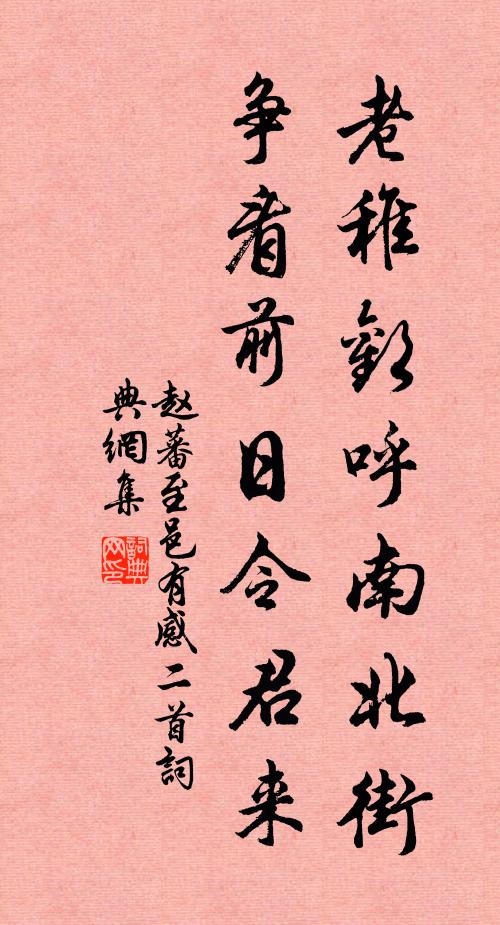 老稚歡呼南北街
争看前日令君来
赵蕃至邑有感二首詞
典網集
詞典
网印